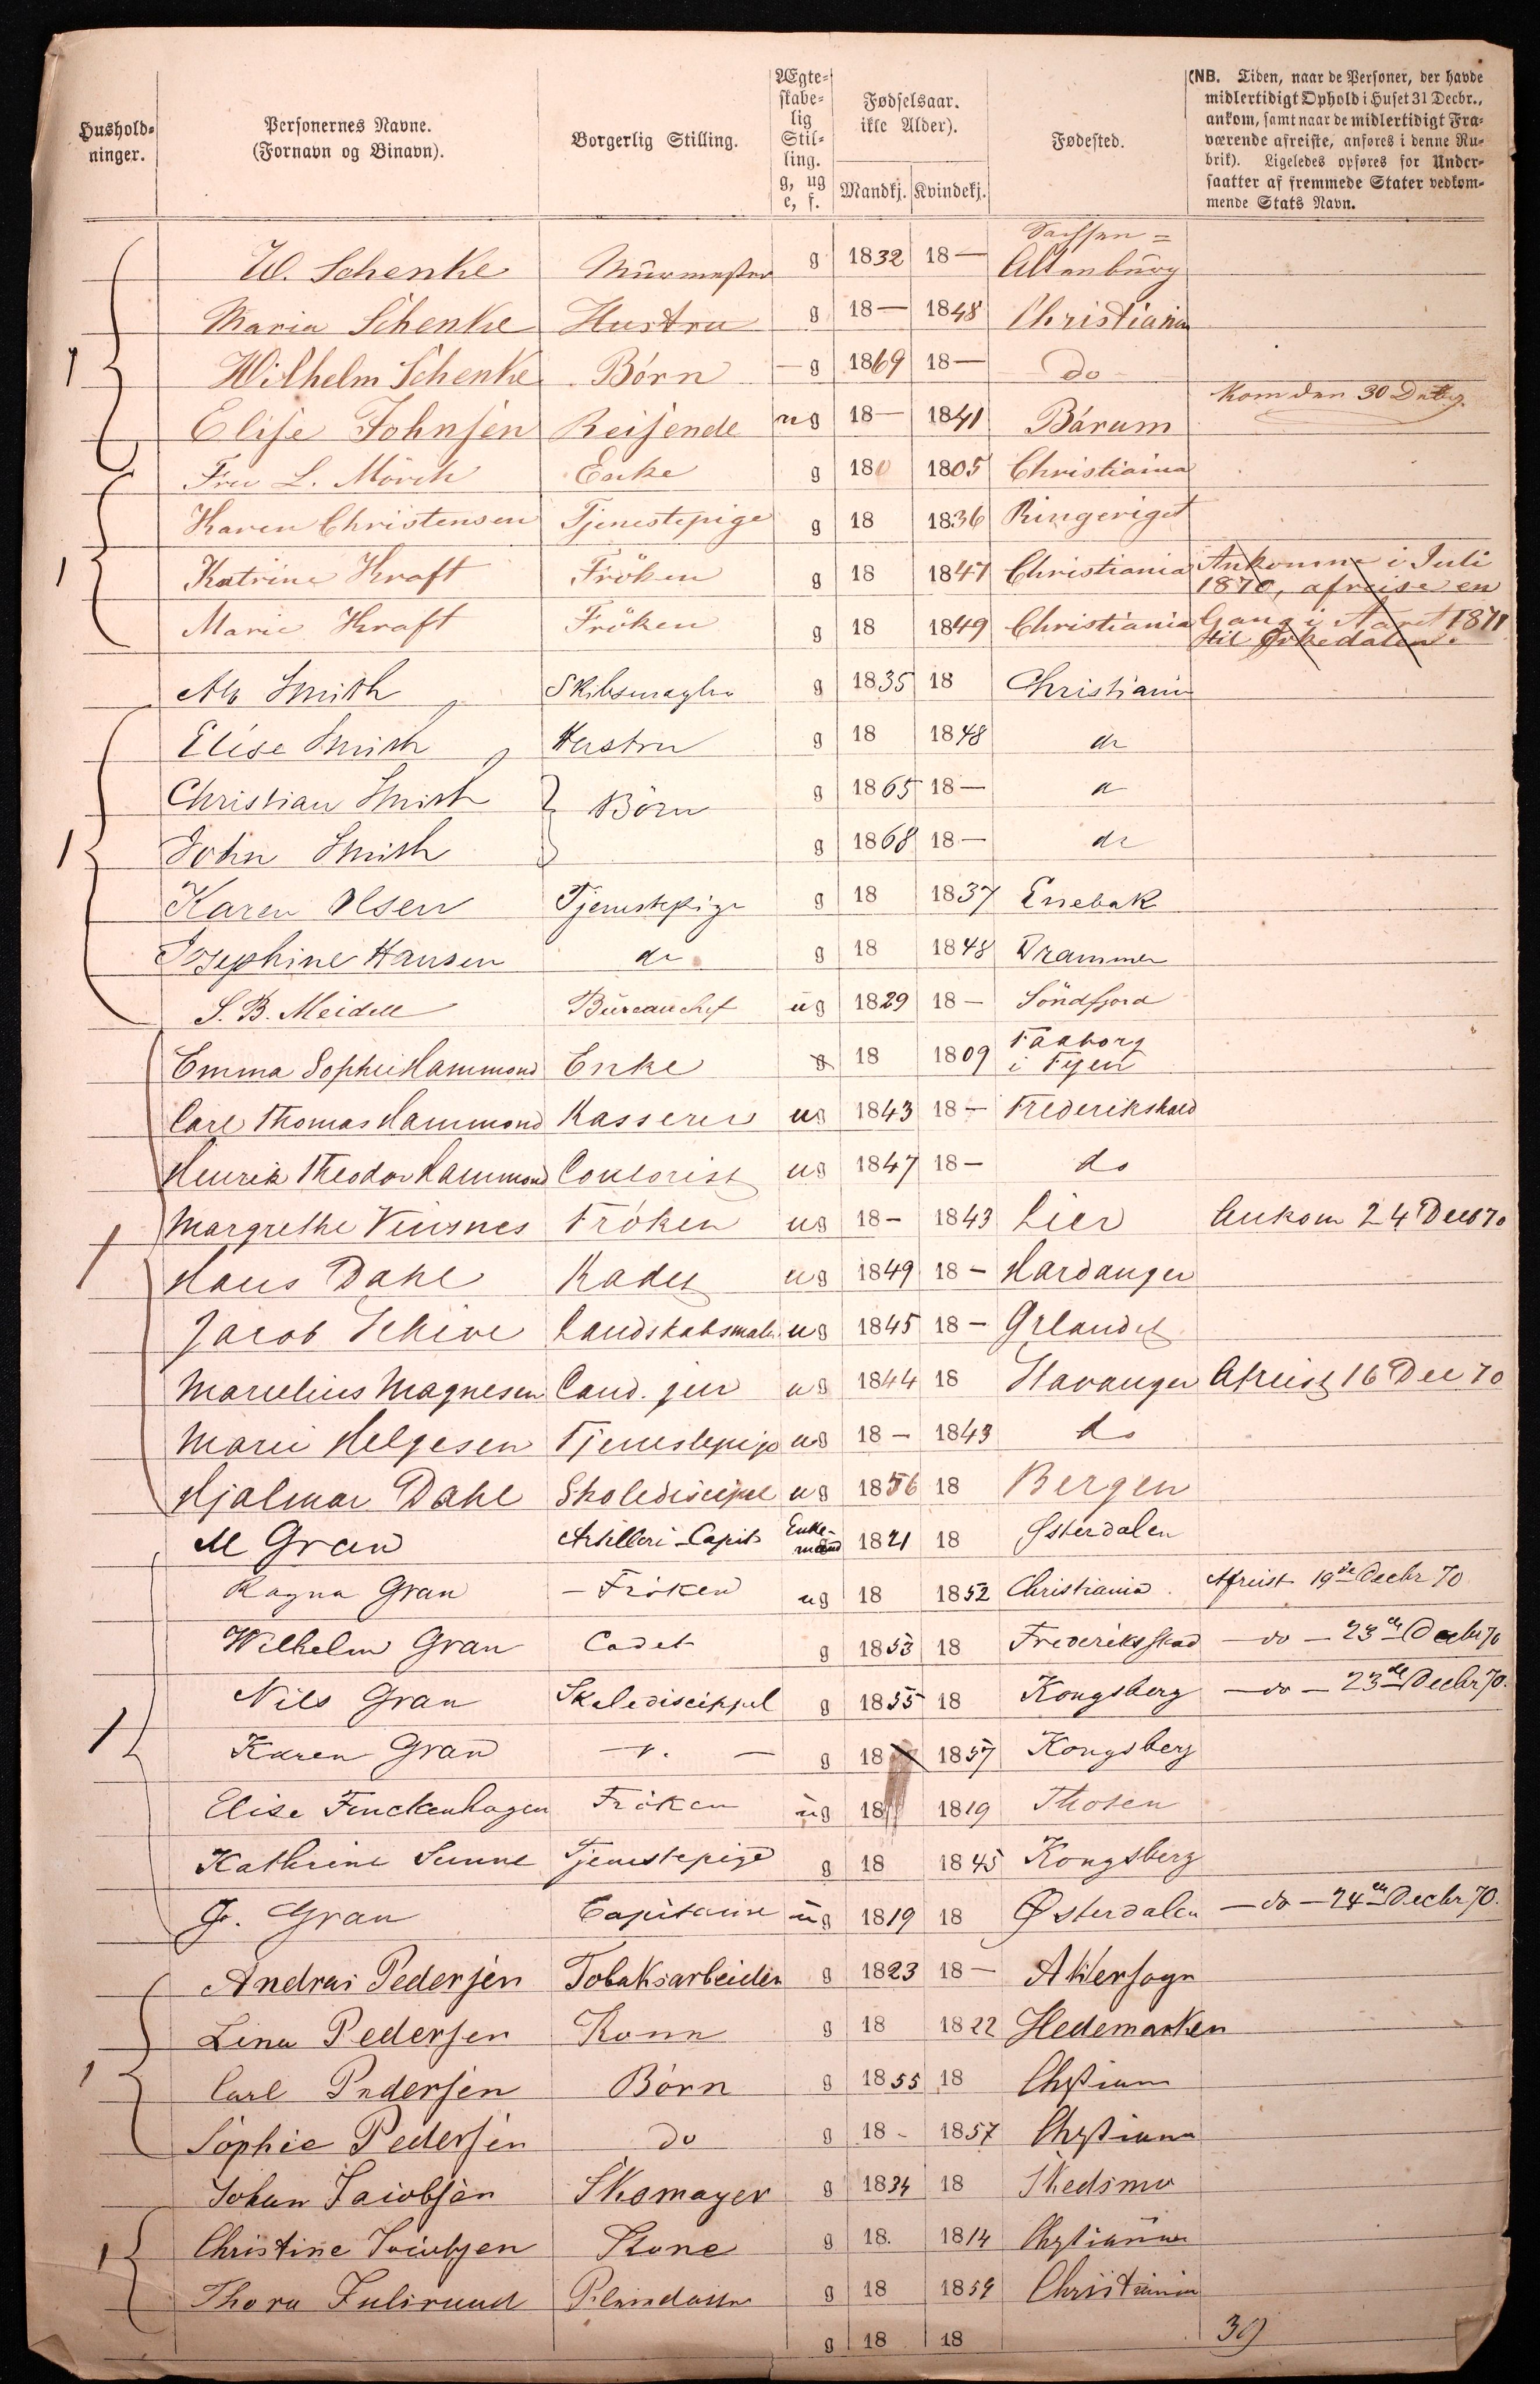 Hushold-
ninger.
Personernes Navne.
(Fornavn og Binavn).
Borgerlig Stilling.
Ægte-
skabe-
lig
Stil-
ling.
g, ug
e, f.
Fødselsaar.
ikke Alder).
Mandkj. Kvindekj.
Fødested.
(NB. Tiden, naar de Personer, der havde
midlertidigt Ophold i Huset 31 Decbr.,
ankom, samt naar de midlertidigt Fra-
værende afreiste, anføres i denne Ru-
brik). Ligeledes opføres for Under-
saatter af fremmede Stater vedkom-
mende Stats Navn.
Sachsen =
W. Schenke Murmester g 1832 18— Altenburg
Maria Schenke Hustru g 18— 1848 Christiania
1 Wilhelm Schenke Börn — g 1869 18— do
Kom den 30
Elise Johnsen Reisende ug 18— 1841 Bärum
Fru L. Mörch Enke g 18 1805 Christiania
Karen Christensen Tjenestepige g 18 1836 Ringeriget
1 Katrine Kraft Fröken g 18 1847 Christiania Ankomne i Juli
1870, afreise en
Marie Kraft Fröken g 18 1849 Christiania Gang i Aaret 1871
til Orkedalen.
Smith Skibsmægler g 1835 18 Christiania
Elise Smith Hustru g 18 1848 do
Christian Smith Börn g 1865 18— do
1 John Smith g 1868 18— do
Karen Olsen Tjenestepige g 18 1837 Enebak
Josephine Hansen do g 18 1848 Drammen
S. B. Meidell Büreauchef ug 1829 18— Söndfjord
Emma Sophie Hammond Enke g 18 1809 Faaborg
i Fyen
Carl Thomas Hammond Kasserer ug 1843 18— Frederikshald
Henrik Theodor Hammond Contorist ug 1847 18— do
1 Margrethe Vinsnes Fröken ug 18— 1843 Lier Ankom 24 Decb 70
Hans Dahl Kadet ug 1849 18— Hardanger
Jacob Schive Landskabsmaler ug 1845 18—
Marcelius Magnesen Cand. jur ug 1844 18 Stavanger Afreist 16 Dec 70
Marie Helgesen Tjenestepige ug 18— 1843 do
Hjalmar Dahl Skolediscipel ug 1856 18 Bergen
M Gran Artilleri-Capit Enke-
mand 1821 18 Østerdalen
Ragna Gran — Fröken ug 18 1852 Christiania. Afreist 19de Decbr 70
Wilhelm Gran Cadet g 1853 18 Frederiksstad — do — 23de Decbr 70
Nils Gran Skolediscippel g 1855 18 Kongsberg — do — 23de Decbr 70.
1 Karen Gran — " — g 18 1857 Kongsberg
Elise Finckenhagen Fröken ug 18 1819 Thoten
Kathrine Sunne Tjenestepige g 18 1845 Kongsberg
J. Gran Capitaine ug 1819 18 Østerdalen — do — 24de Decbr 70.
Andras Pedersen Tobaksarbeider g 1823 18— Akersogn
Lina Pedersen Kone g 18 1822 Hedemarken
1 Carl Pedersen Börn g 1855 18 Chstiana
Sophie Pedersen do g 18— 1857 Chrstiana
Johan Jacobsen Skomager g 1834 18 Skedsmo
1 Christine Jacobsen Kone g 18. 1814 Chrstiania
Thora Julsruud Pleiedatter g 18 1859 Christiania
g 18 18 39